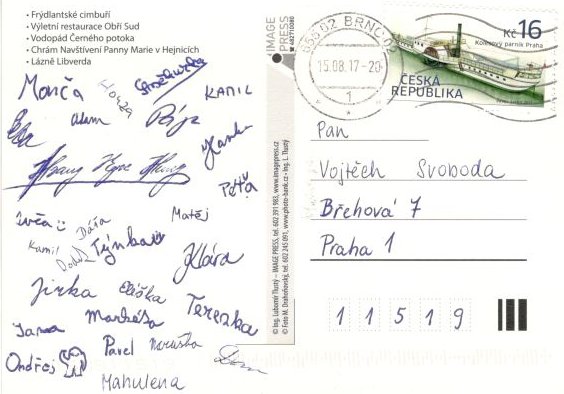 • Frýdlantské cimbuří
• Výletní restaurace Obří Sud
• Vodopád Černého potoka
• Chrám Navštívení Panny Marie v Hejnicích
• Lázně Libverda
Monča
Honza
KAMIL
Eva
Adam
Hanka
Peťa
Matěj
Ivča
Dáša
Kamil
Týnka
Klára
Jirka
Eliška
Markéta
Terezka
Jana
Pavel
Verunka
Ondřej
Mahulena
IMAGE PRESS
© Ing. Lubomír Tlustý – IMAGE PRESS, tel. 602 391 983, www.imagepress.cz
© Foto M. Drahoňovský, tel. 602 245 091, www.photo-bank.cz - Ing. L. Tlustý
BRNO 02
15.08.17-20
1
Kč 16
Kolesový parník Praha
ČESKÁ REPUBLIKA
Pan
Vojtěch Svoboda
Břehová 7
Praha 1
11519